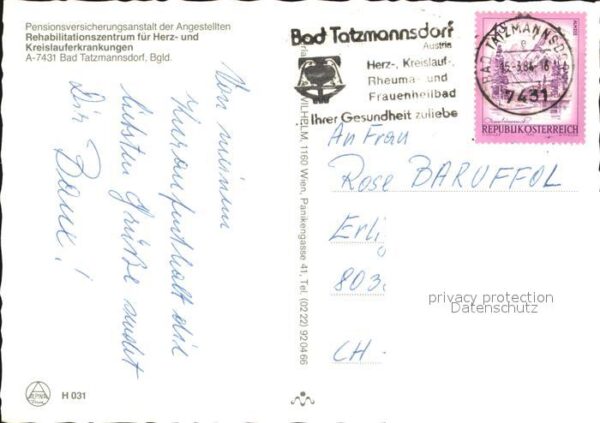 Pensionsversicherungsanstalt der Angestellten
Rehabilitationszentrum für Herz- und
Kreislauferkrankungen
A-7431 Bad Tatzmannsdorf, Bgld.
Von meinem
Kuraufenthalt die
liebsten Grüße sendet
Dir
Bad Tatzmannsdorf
Austria
Herz-, Kreislauf-,
Rheuma- und
Frauenheilbad
Ihrer Gesundheit zuliebe
BAD TATZMANNSDORF
7431
REPUBLIK ÖSTERREICH
WILHELM, 1160 Wien, Panikengasse 41, Tel. (0222) 92 04 66
An Frau
Rose BARUFFOL
Erli
803.
CH-
privacy protection
Datenschutz
ALPINA
H 031